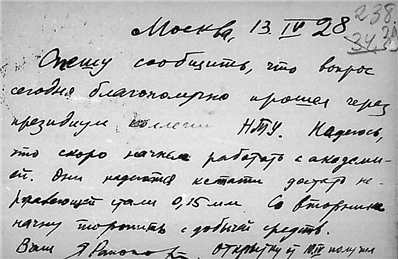 Москва, 13 IV 28
238
Спешу сообщить, что вопрос
сегодня благополучно прошел через
президиум коллегии НТУ. Надеюсь,
что скоро начнем работать с академи-
ей. Они надеются кстати достать не-
ржавеющей стали 0,15 мм. Со вторника
начну торопить с добычей средств.
Ваш Я открытку получил